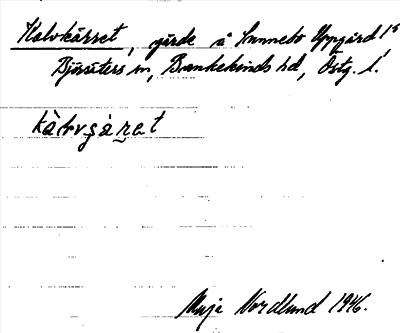 Halvkärret, gärde å Sunnebo Uppgård 1⁵
Björsäters sn, Bankekinds hd, Östg. l.
Maja Nordlund 1946.